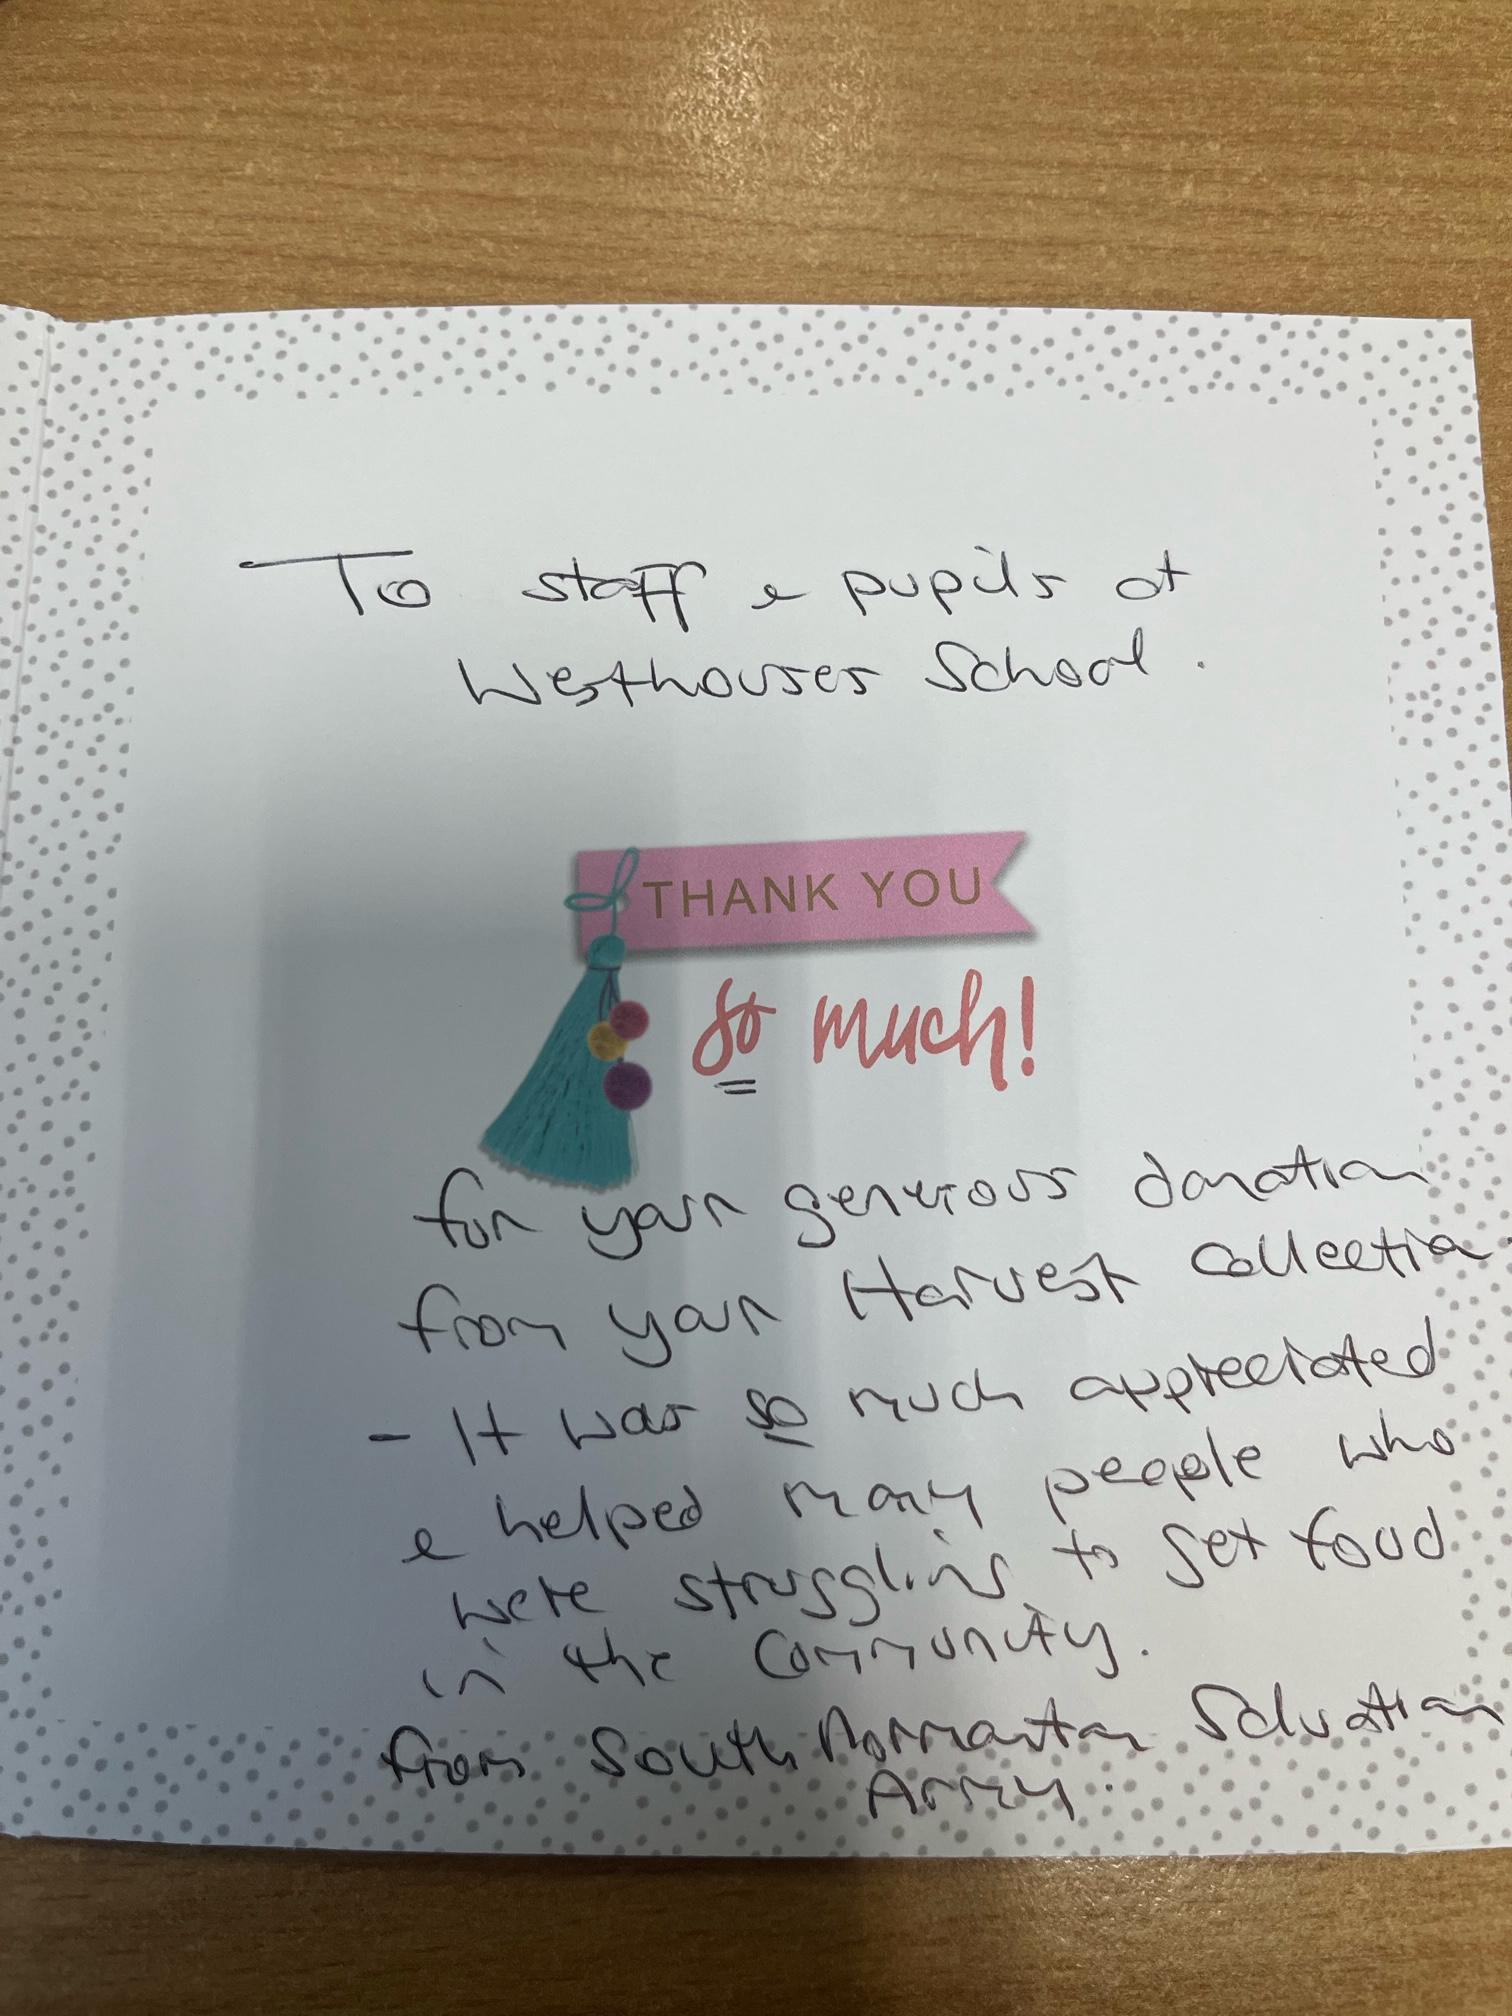 To staff & pupils at
Westhouses School.
THANK YOU
so much!
for your generous donation
from your Harvest Collection
- It was so much appreciated
& helped many people who
were struggling to get food
in the Community.
from South Normanton Salvation
Army.